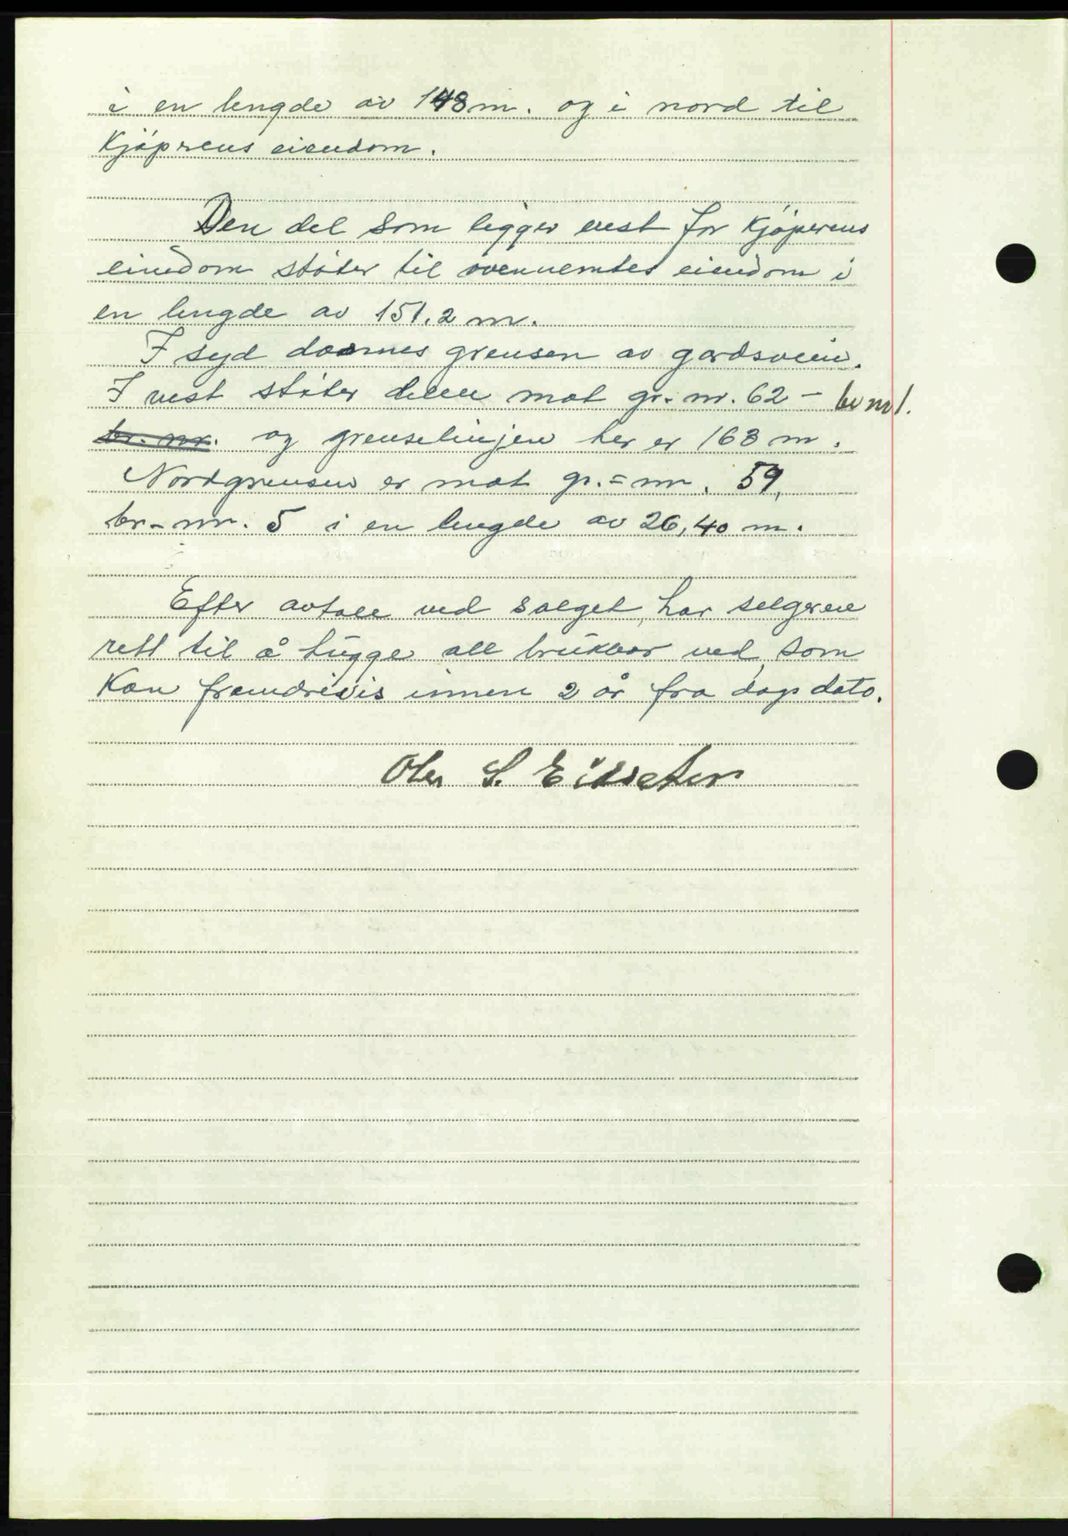 i en lengde av 148 m. og i nord til
Kjøprens eiendom.
Den del som ligger vest for Kjøperens
eiendom støter til ovennemtes eiendom i
en lengde av 151.2 m.
I syd dannes grensen av gardsveien.
I vest støter delen mot gr.-nr. 62 - br nr 1.
br. nr. og grenselinjen her er 168 m.
Nordgrensen er mot gr.-nr. 59,
br.-nr. 5 i en lengde av 26,40 m.
Efter avtale ved salget, har selgeren
rett til å hugge all brukbar ved, som
kan fremdrivis innen 2 år fra dags dato.
S. Eikseter